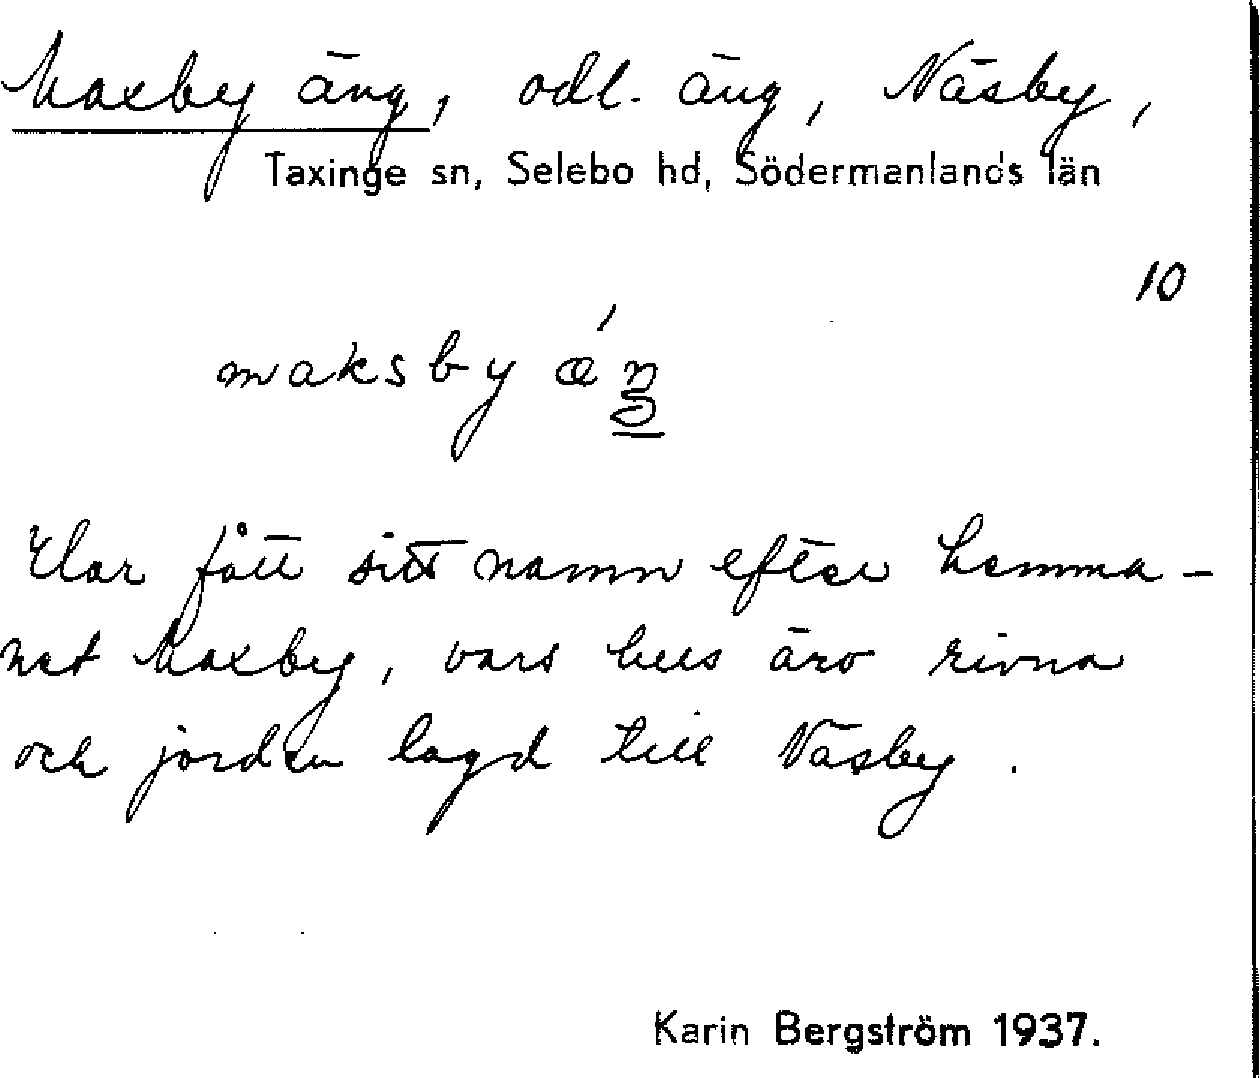 Maxby äng, odl. äng, Näsby,
Taxinge sn, Selebo hd, Södermanlands län
10
maksby æ´ŋ
Har fått sitt namn efter hemma-
net Maxby, vars hus äro rivna
och jorden lagd till Näsby.
Karin Bergström 1937.